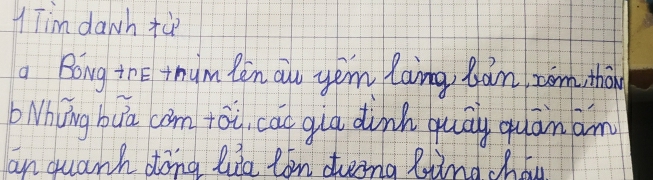 1 Tìm danh từ
a Bóng tre trùm lên âu yếm làng, bản, xóm, thôn
b Những bữa cơm tối, các gia đình quây quần ấm
áp quanh đống lửa lớn đương bừng cháy